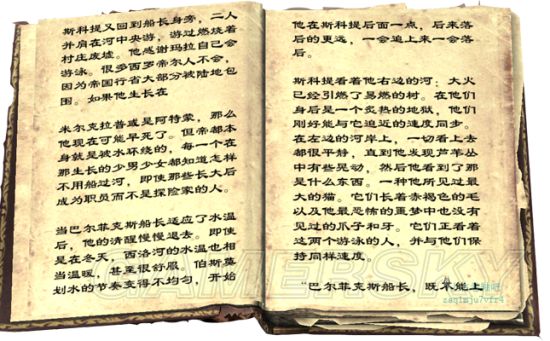 斯科提又回到船长身旁，二人
并肩在河中央游，游过燃烧着
村庄废墟。他感谢玛拉自己会
游泳。很多西罗帝尔人不会，
因为帝国行省大部分被陆地包
围。如果他生长在
米尔克拉普或是阿特蒙，那么
他现在可能早死了。但帝都本
身就是被水环绕的，每一个在
那生长的少男少女都知道怎样
不用船过河，即使那些长大后
成为职员而不是探险家的人。
当巴尔菲克斯船长适应了水温
后，他的清醒慢慢退去。即使
是在冬天，西洛河的水温也相
当温暖，甚至很舒服。伯斯莫
划水的节奏变得不均匀，开始
他在斯科提后面一点，后来落
后的更远，一会追上来一会落
后。
斯科提看着他右边的河：大火
已经引燃了易燃的村。在他们
身后是一个炙热的地狱，他们
刚好能与它迫近的速度同步。
在左边的河岸上，一切看上去
都很平静，直到他发现芦苇丛
中有些晃动，然后他看到了那
是什么东西。一种他所见过最
大的猫。它们长着赤褐色的毛
以及他最恐怖的噩梦中也没有
见过的爪子和牙。它们正看着
这两个游泳的人，并与他们保
持同样速度。
“巴尔菲克斯船长，既不能上
GAMERSKY
zaq1mju7vfr4